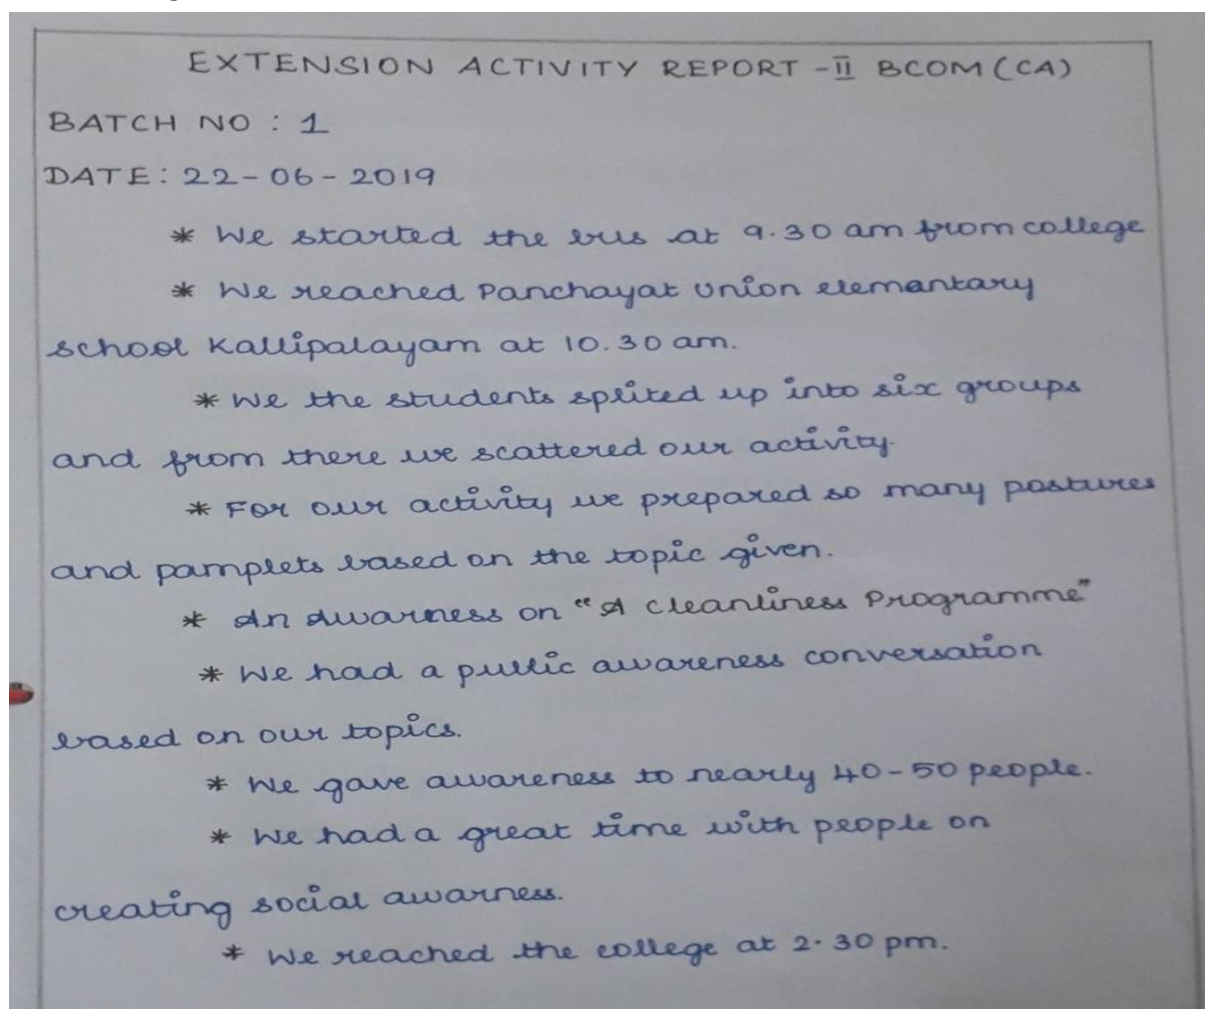 EXTENSION ACTIVITY REPORT - II BCOM (CA)
BATCH NO : 1
DATE: 22-06-2019
* We started the bus at 9.30 am from college
* We reached Panchayat Union elemantary
school Kallipalayam at 10.30 am.
* We the students splited up into six groups
and from there we scattered our activity.
* For our activity we prepared so many postures
and pamplets based on the topic given.
* An Awarness on "A Cleanliness Programme"
* We had a public awareness conversation
based on our topics.
* We gave awareness to nearly 40-50 people.
* We had a great time with people on
creating social awarness.
* We reached the college at 2.30 pm.